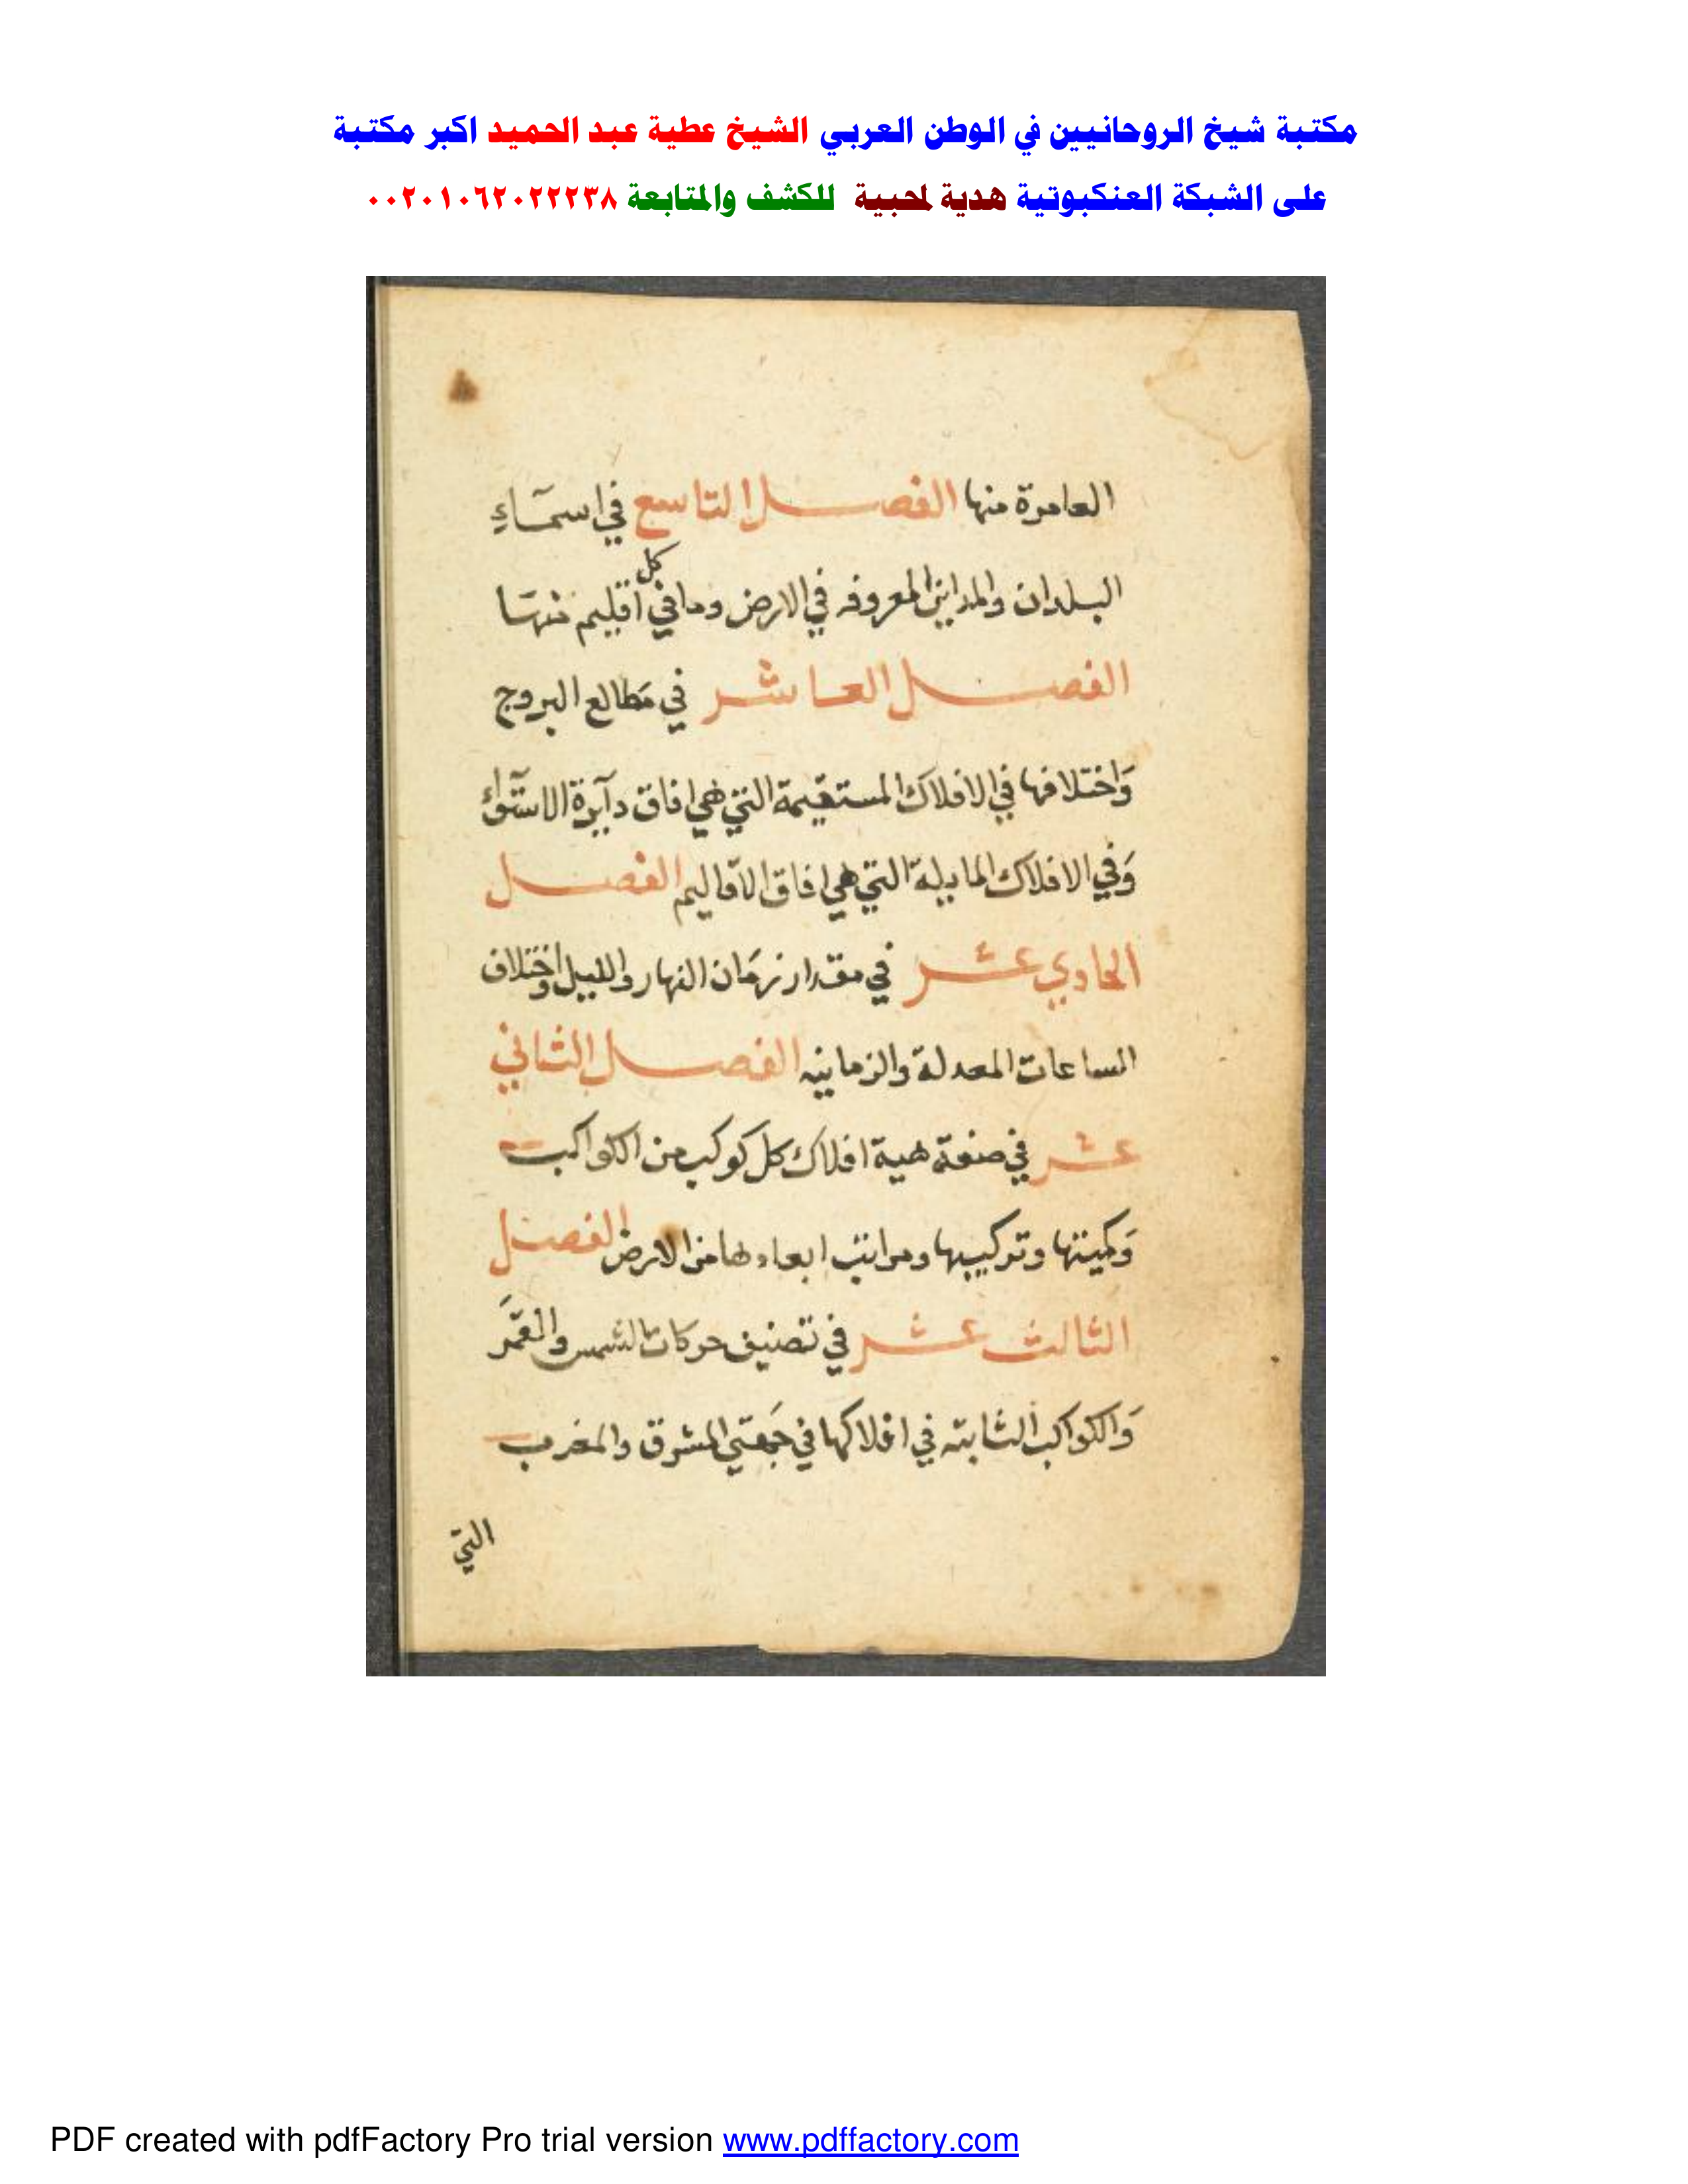 مكتبة شيخ الروحانيين في الوطن العربي الشيخ عطية عبد الحميد اكبر مكتبة
على الشبكة العنكبوتية هدية لمحبية للكشف والمتابعة ٠٠٢٠١٠٦٢٠٢٢٢٣٨
العامرة منها الفصل التاسع في اسمآءِ
البلدان والمداين المعروفه في الارض وما في كل اقليم منها
الفصل العاشر في مَطالع البروج
وَاختلافها في الافلاك المستقيمة التي هي افاق دآيرة الاستوآء
وَفي الافلاك المايلة التي هي افاق الاقاليم الفصل
الحادي عشر في مقدار زمَان النهار والليل واختلاف
الساعات المعدلة والزمانيه الفصل الثاني
عشر في صفة هية افلاك كل كوكب من الكواكب
وَكميتها وتركيبها ومراتب ابعادها من الارض الفصل
الثالث عشر في تصنيف حركات الشمس والقمَر
وَالكواكب الثابته في افلاكها في جهتي المشرق والمغرب
التي
PDF created with pdfFactory Pro trial version www.pdffactory.com